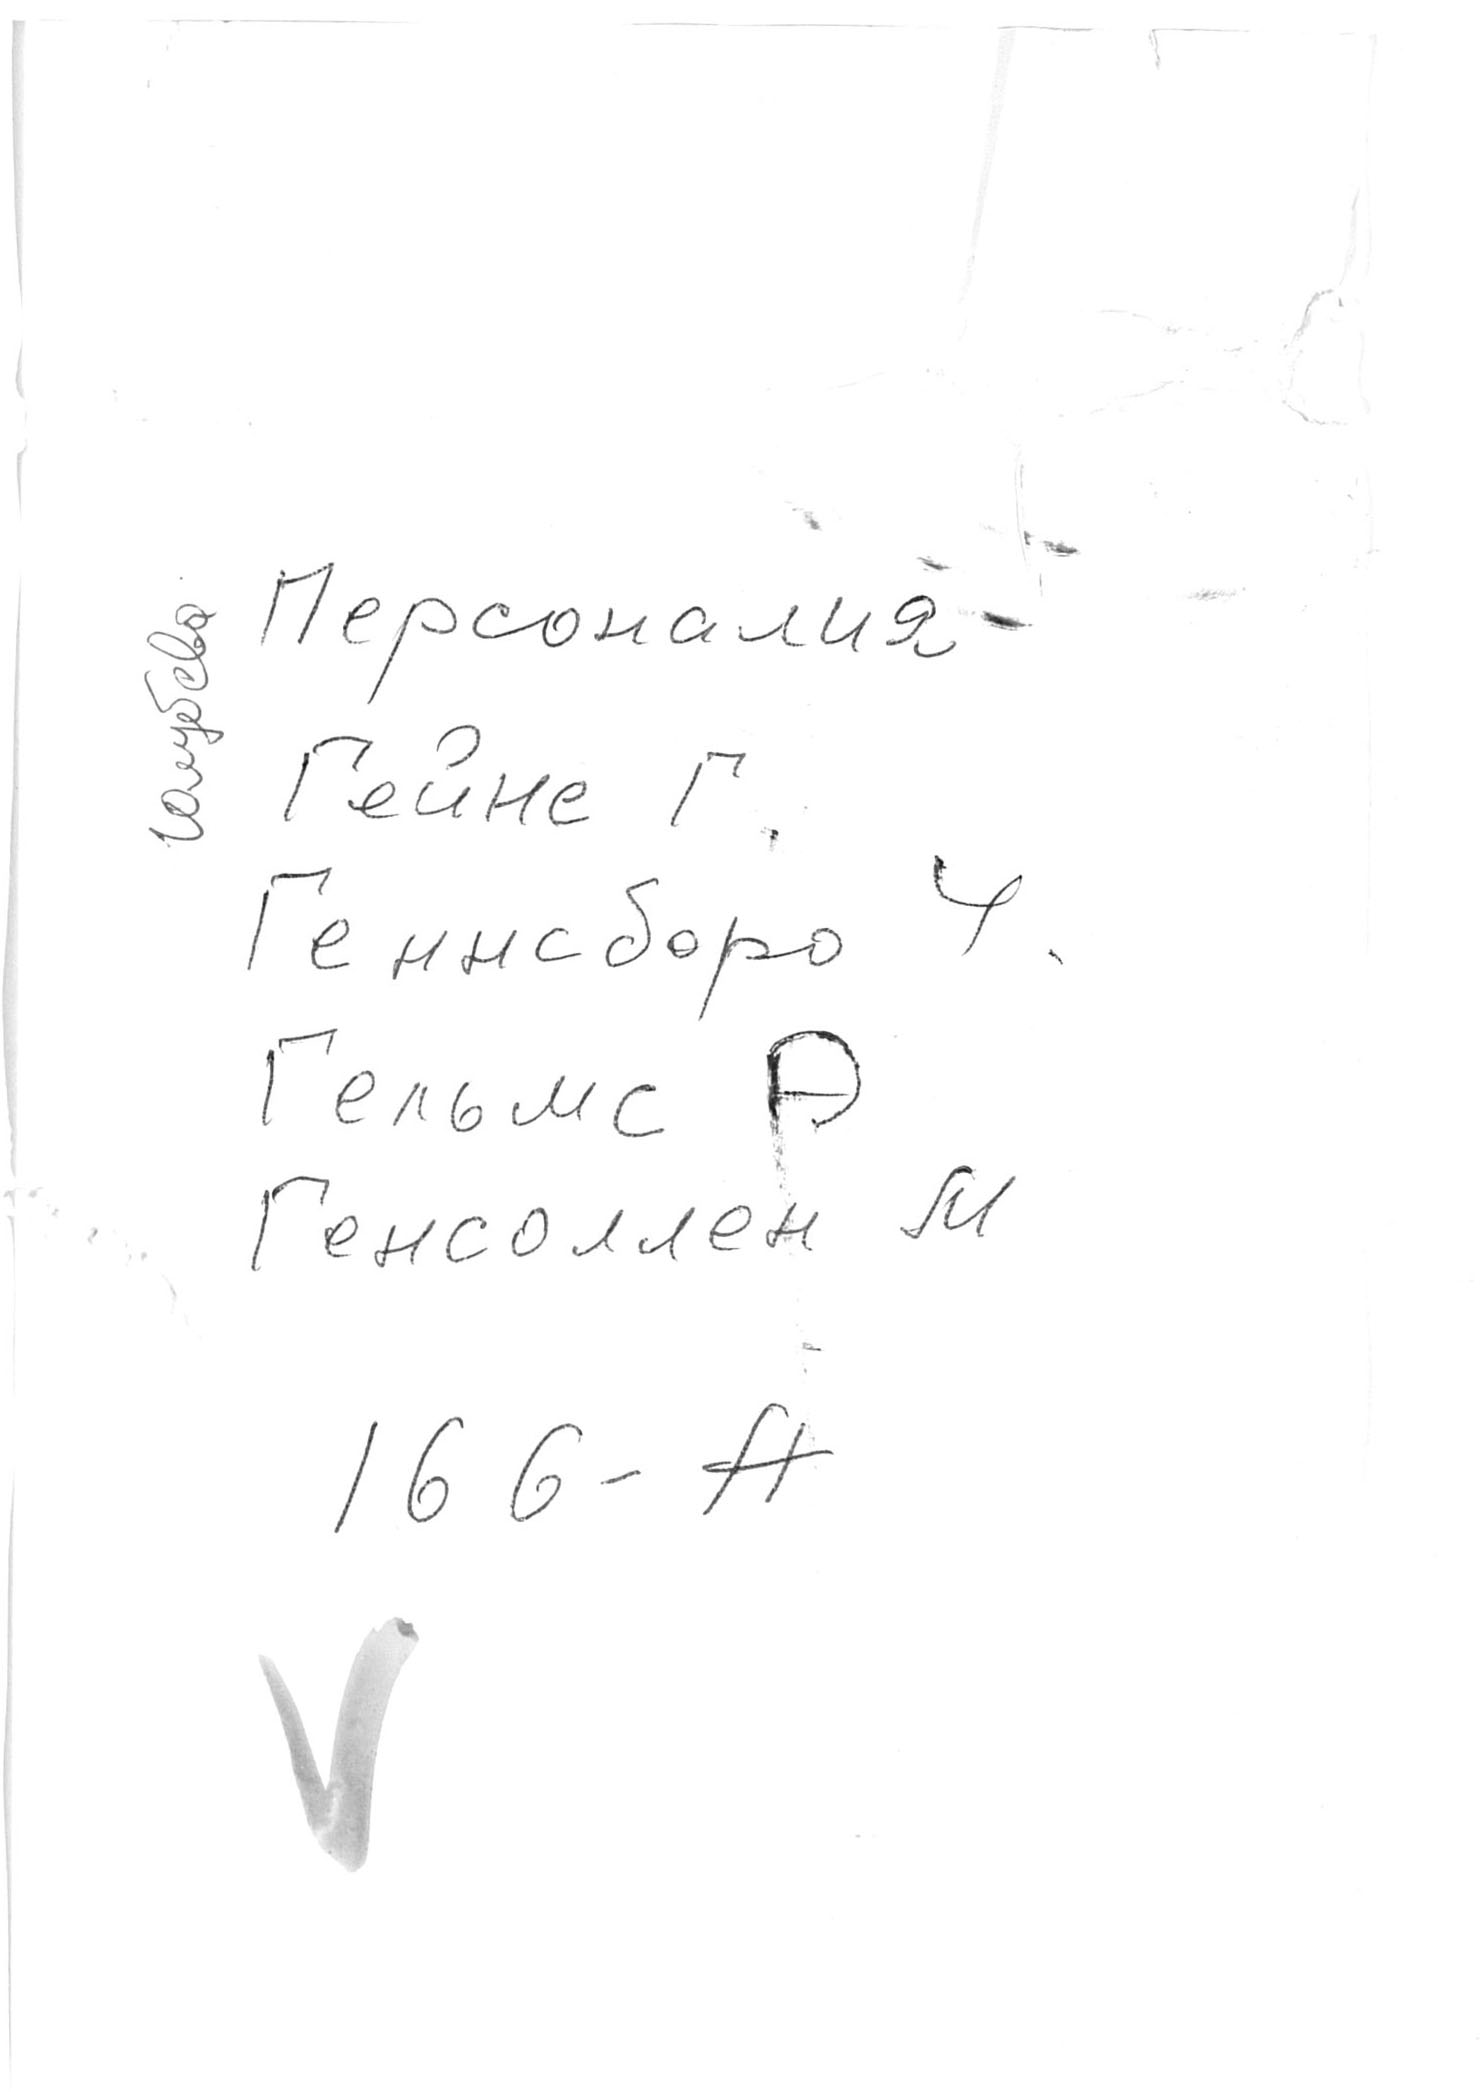 Голубева
Персоналия -
Гейне Г.
Геннсборо Ч.
Гельмс Р
Генсоллен М
166-А
V